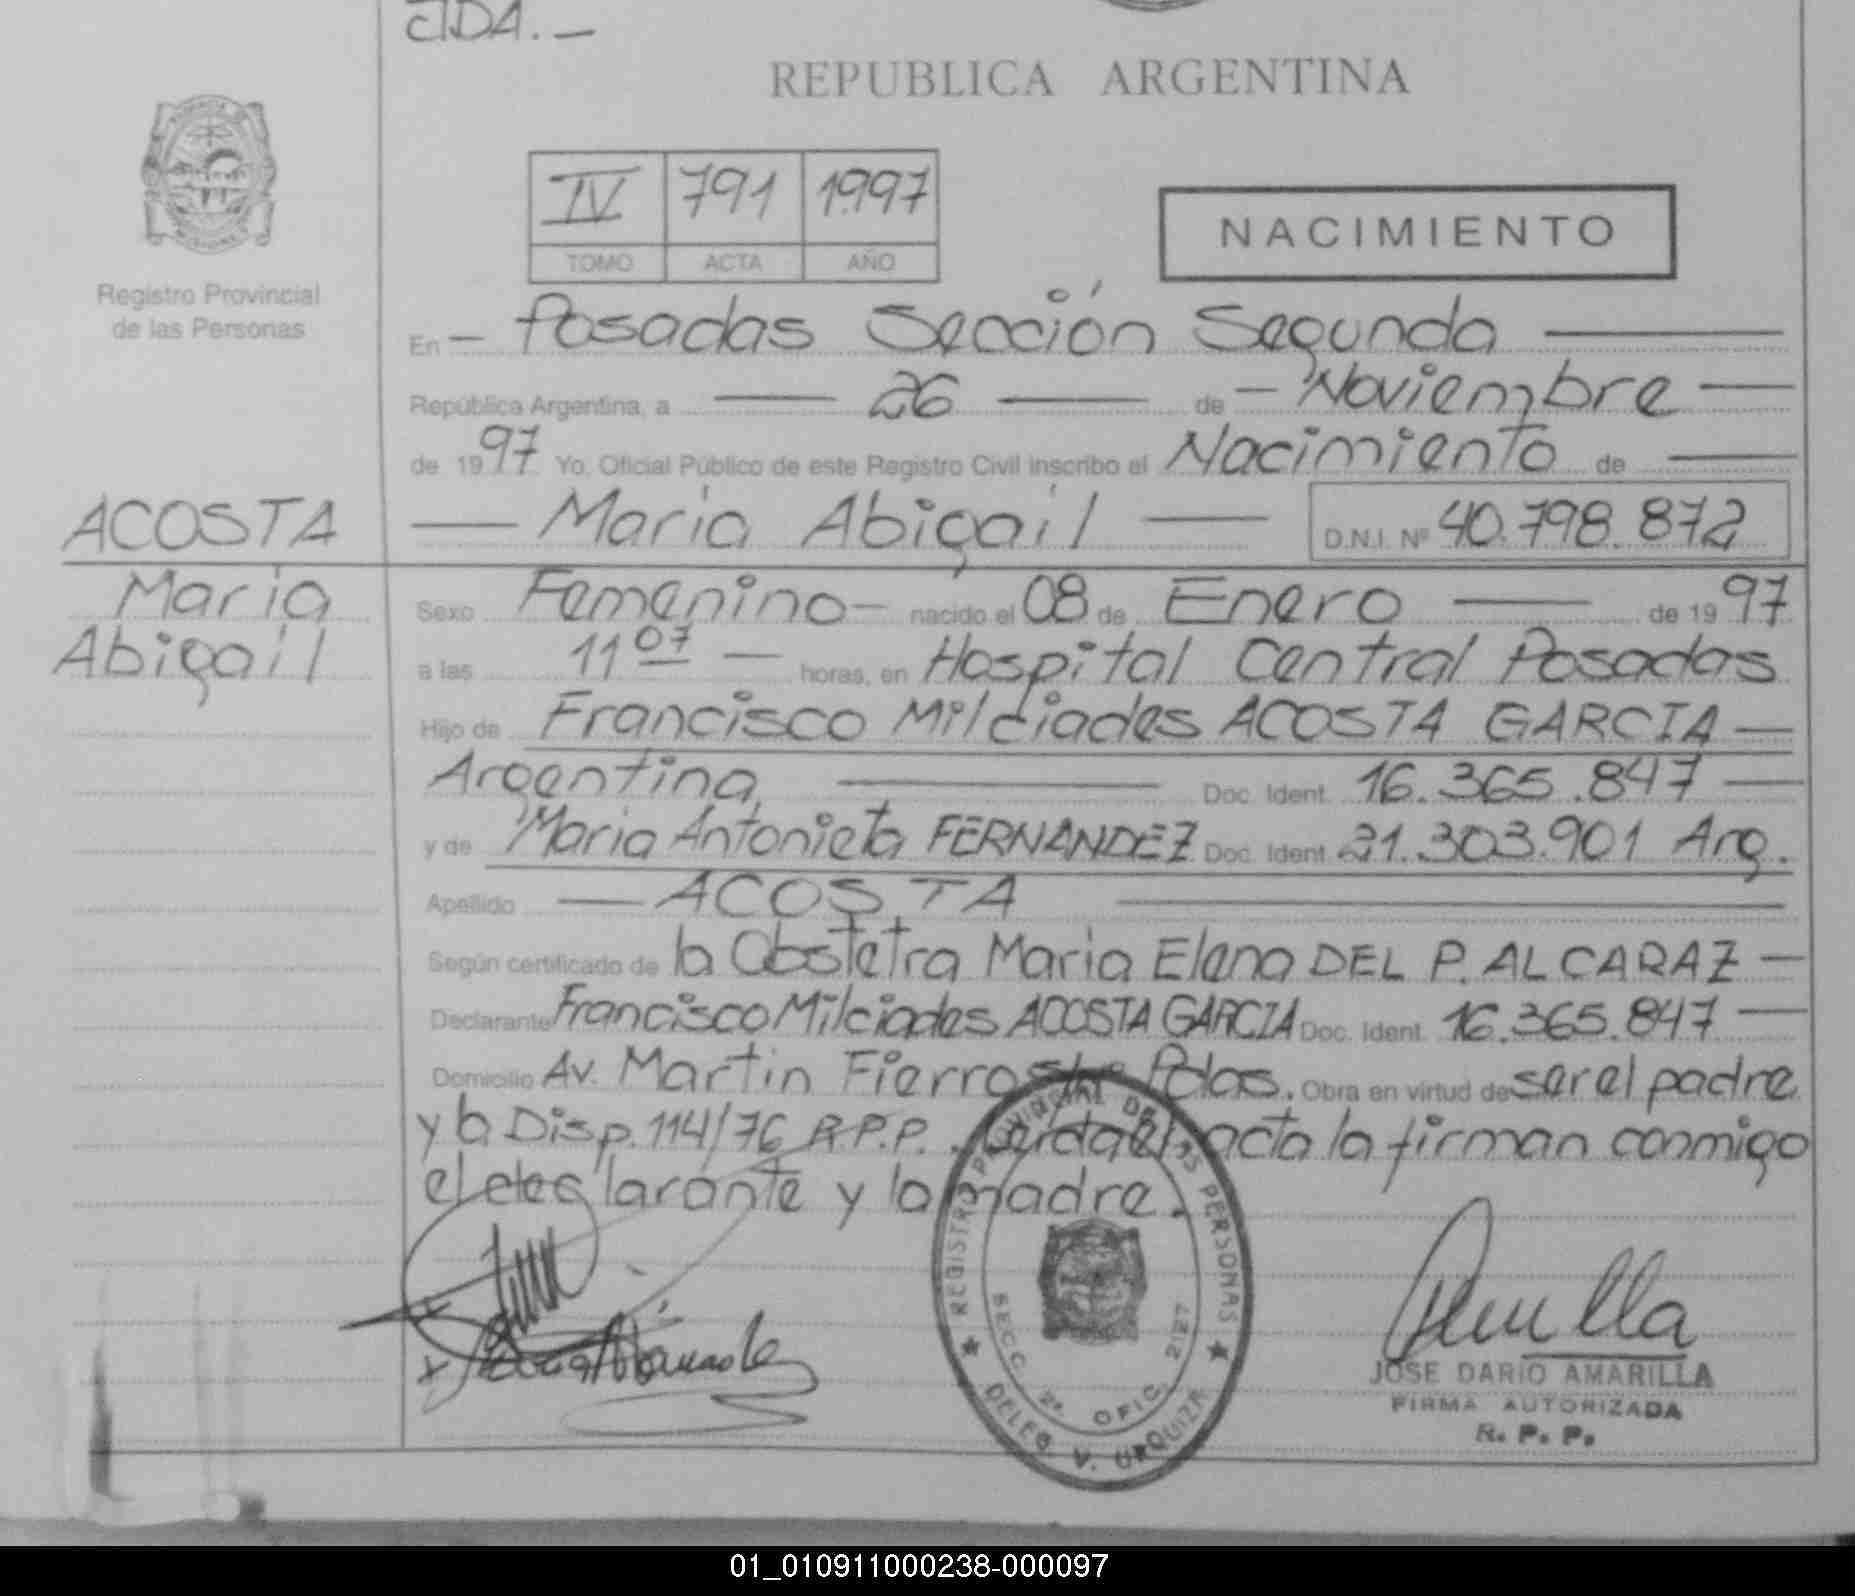 CIDA.—
REPUBLICA ARGENTINA
IV 791 1997
TOMO ACTA AÑO
NACIMIENTO
Registro Provincial
de las Personas
En — Posadas Sección Segunda —
República Argentina, a — 26 — de — Noviembre —
de 1997 Yo, Oficial Público de este Registro Civil inscribo el Nacimiento de —
ACOSTA — Maria Abigail — D.N.I. Nº 40.798.872
Maria Sexo Femenino — nacido el 08 de Enero — de 1997
Abigail a las 11 07 — horas, en Hospital Central Posadas
Hijo de Francisco Milciades ACOSTA GARCIA —
Argentina, — Doc. Ident. 16.365.847 —
y de Maria Antonieta FERNANDEZ Doc. Ident. 21.303.901 Arg.
Apellido — ACOSTA —
Según certificado de la Obstetra Maria Elena DEL P. ALCARAZ —
Declarante Francisco Milciades ACOSTA GARCIA Doc. Ident. 16.365.847 —
Domicilio Av. Martin Fierro Pdas. Obra en virtud de ser el padre
y la Disp. 114/76 R.P.P. acta la firman conmigo
el declarante y la madre.
REGISTRO PROVINCIAL DE LAS PERSONAS
SECC. 2ª OFIC. 2127
DELEG. V. URQUIZA
JOSE DARIO AMARILLA
FIRMA AUTORIZADA
R. P. P.
01_010911000238-000097